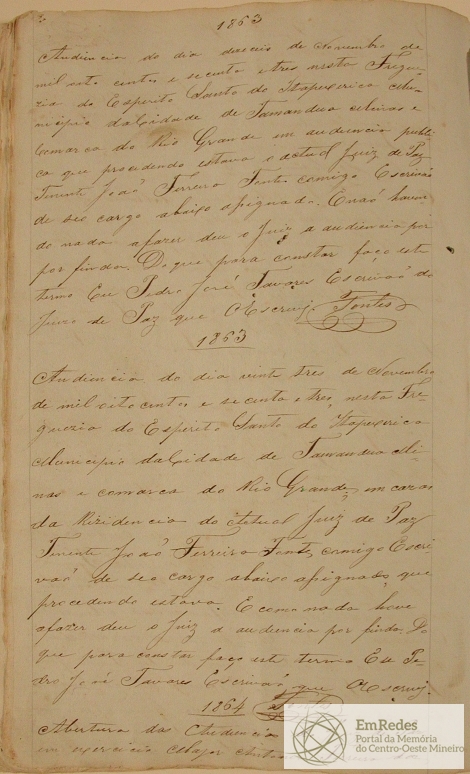 1863
Audiencia do dia deseseis de Novembro de
mil oito centos e secenta e tres nesta Fregue-
zia do Espirito Santo do Itapecerica Mu-
nicipio da Cidade de Tamandua Minas e
Comarca do Rio Grande em audiencia publi-
ca que procedendo estava o actual Juiz de Paz
Tenente João Ferreira Fontes comigo Escrivão
de seo cargo abaixo asignado. E não haven-
do nada afazer deu o Juiz a audiencia por
por finda. Do que para constar faço este
termo Eu Pedro José Tavares Escrivão do
Juizo de Paz que Escrevy. Fontes
1863
Audiencia do dia vinte tres de Novembro
de mil oito centos e secenta e tres, nesta Fre-
guezia do Espirito Santo do Itapecerica
Municipio da Cidade de Tamandua Mi-
nas e comarca do Rio Grande, em caza
da Rezidencia do Actual Juiz de Paz
Tenente João Ferreira Fontes comigo Escri-
vão de seo cargo abaixo asignado, que
procedendo estava. E como nada houve
afazer deu o Juiz a audiencia por finda. Do
que para constar faço este termo Eu Pe-
dro José Tavares Escrivão que Escrevy.
1864 Fontes
Abertura das Audiencia
em exercicio Major
EmRedes
Portal da Memória
do Centro-Oeste Mineiro